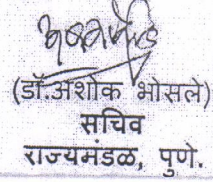 (डॉ.अशोक भोसले)
सचिव
राज्यमंडळ, पुणे.